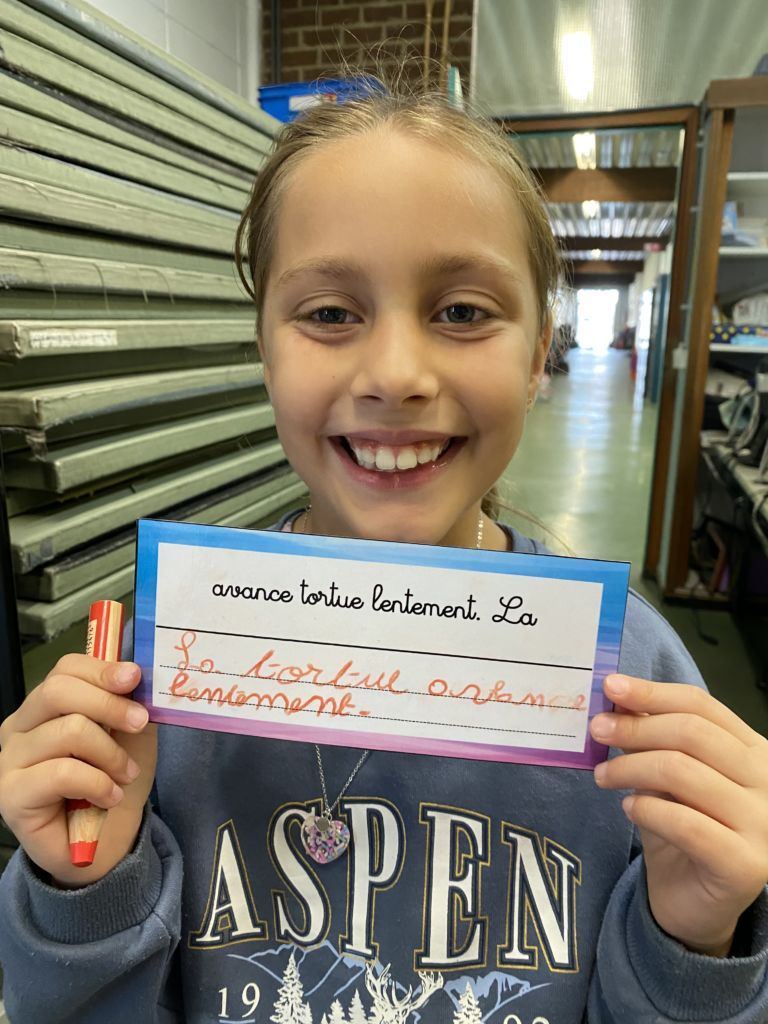 avance tortue lentement. La
La tortue avance
lentement.
ASPEN
19